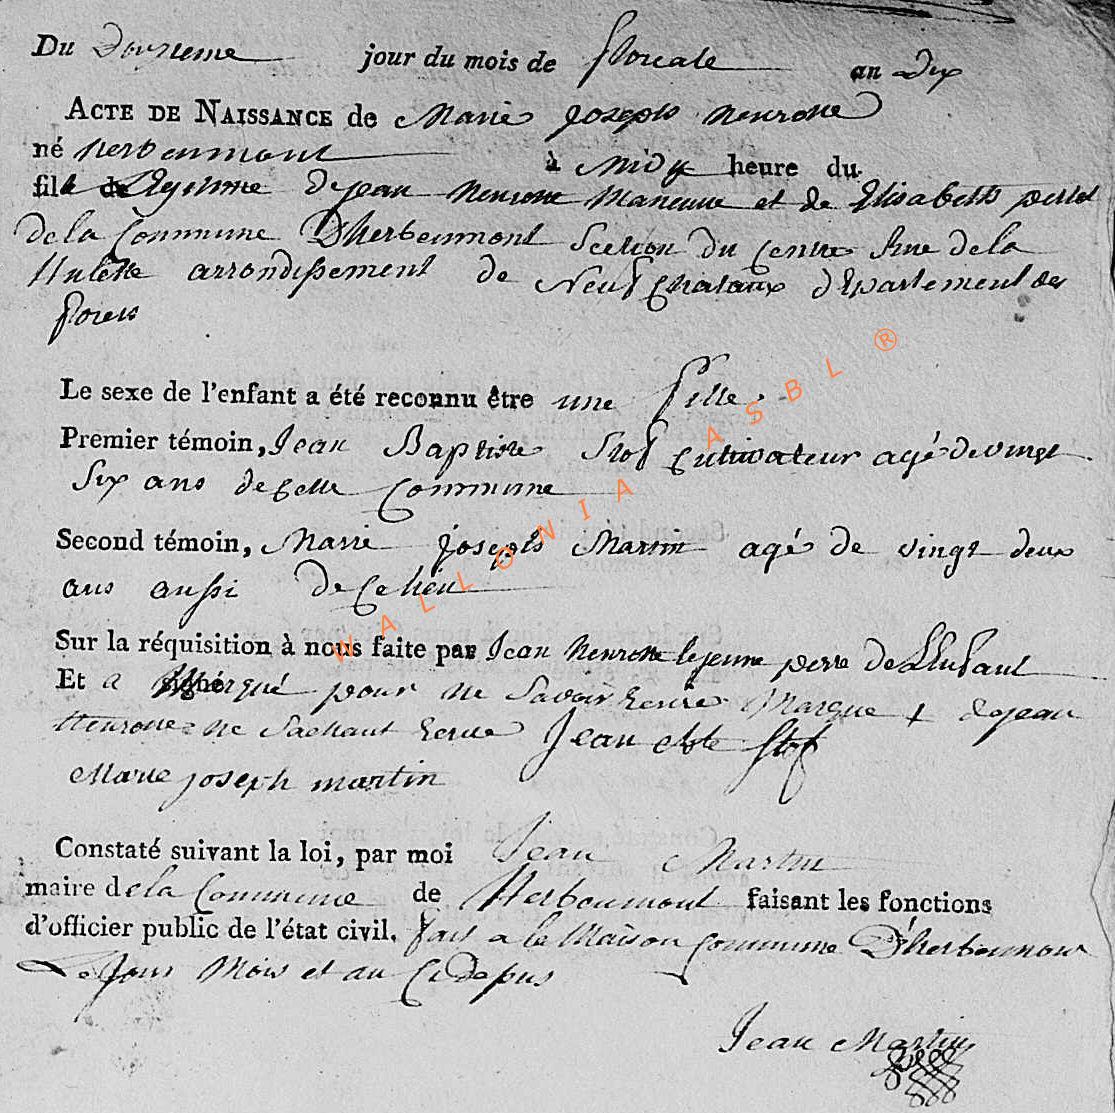 Du Douzieme jour du mois de floreale an Dix
ACTE DE NAISSANCE de Marie joseph Henrotte
né herbeumont à Midy heure du
fille Legitime De jean Henrotte Maneuve et de Elisabeth perlot
de la Commune D'herbeumont Section du Centre Rue de la
arrondissement de Neufchataux département des
forets
Le sexe de l'enfant a été reconnu être une fille
Premier témoin, Jean Baptiste Stof Cultivateur agé de vingt
Six ans de Celle Commune
Second témoin, Marie joseph Martin agé de vingt deux
ans aussi De Ce lieu
Sur la réquisition à nous faite par Jean Henrotte lejeune pere De L'Enfant
Et a Marqué pour ne Savoir Ecrire Marque + de jean
Henrotte ne Sachant Ecrire Jean Bte Stof
Marie joseph martin
Constaté suivant la loi, par moi Jean Martin
maire de la Commune de Herbeumont faisant les fonctions
d'officier public de l'état civil. fait a la Maison Commune D'herbeumont
Le Jour Mois et an Ci Depus
Jean Martin
WALLONIA ASBL ®